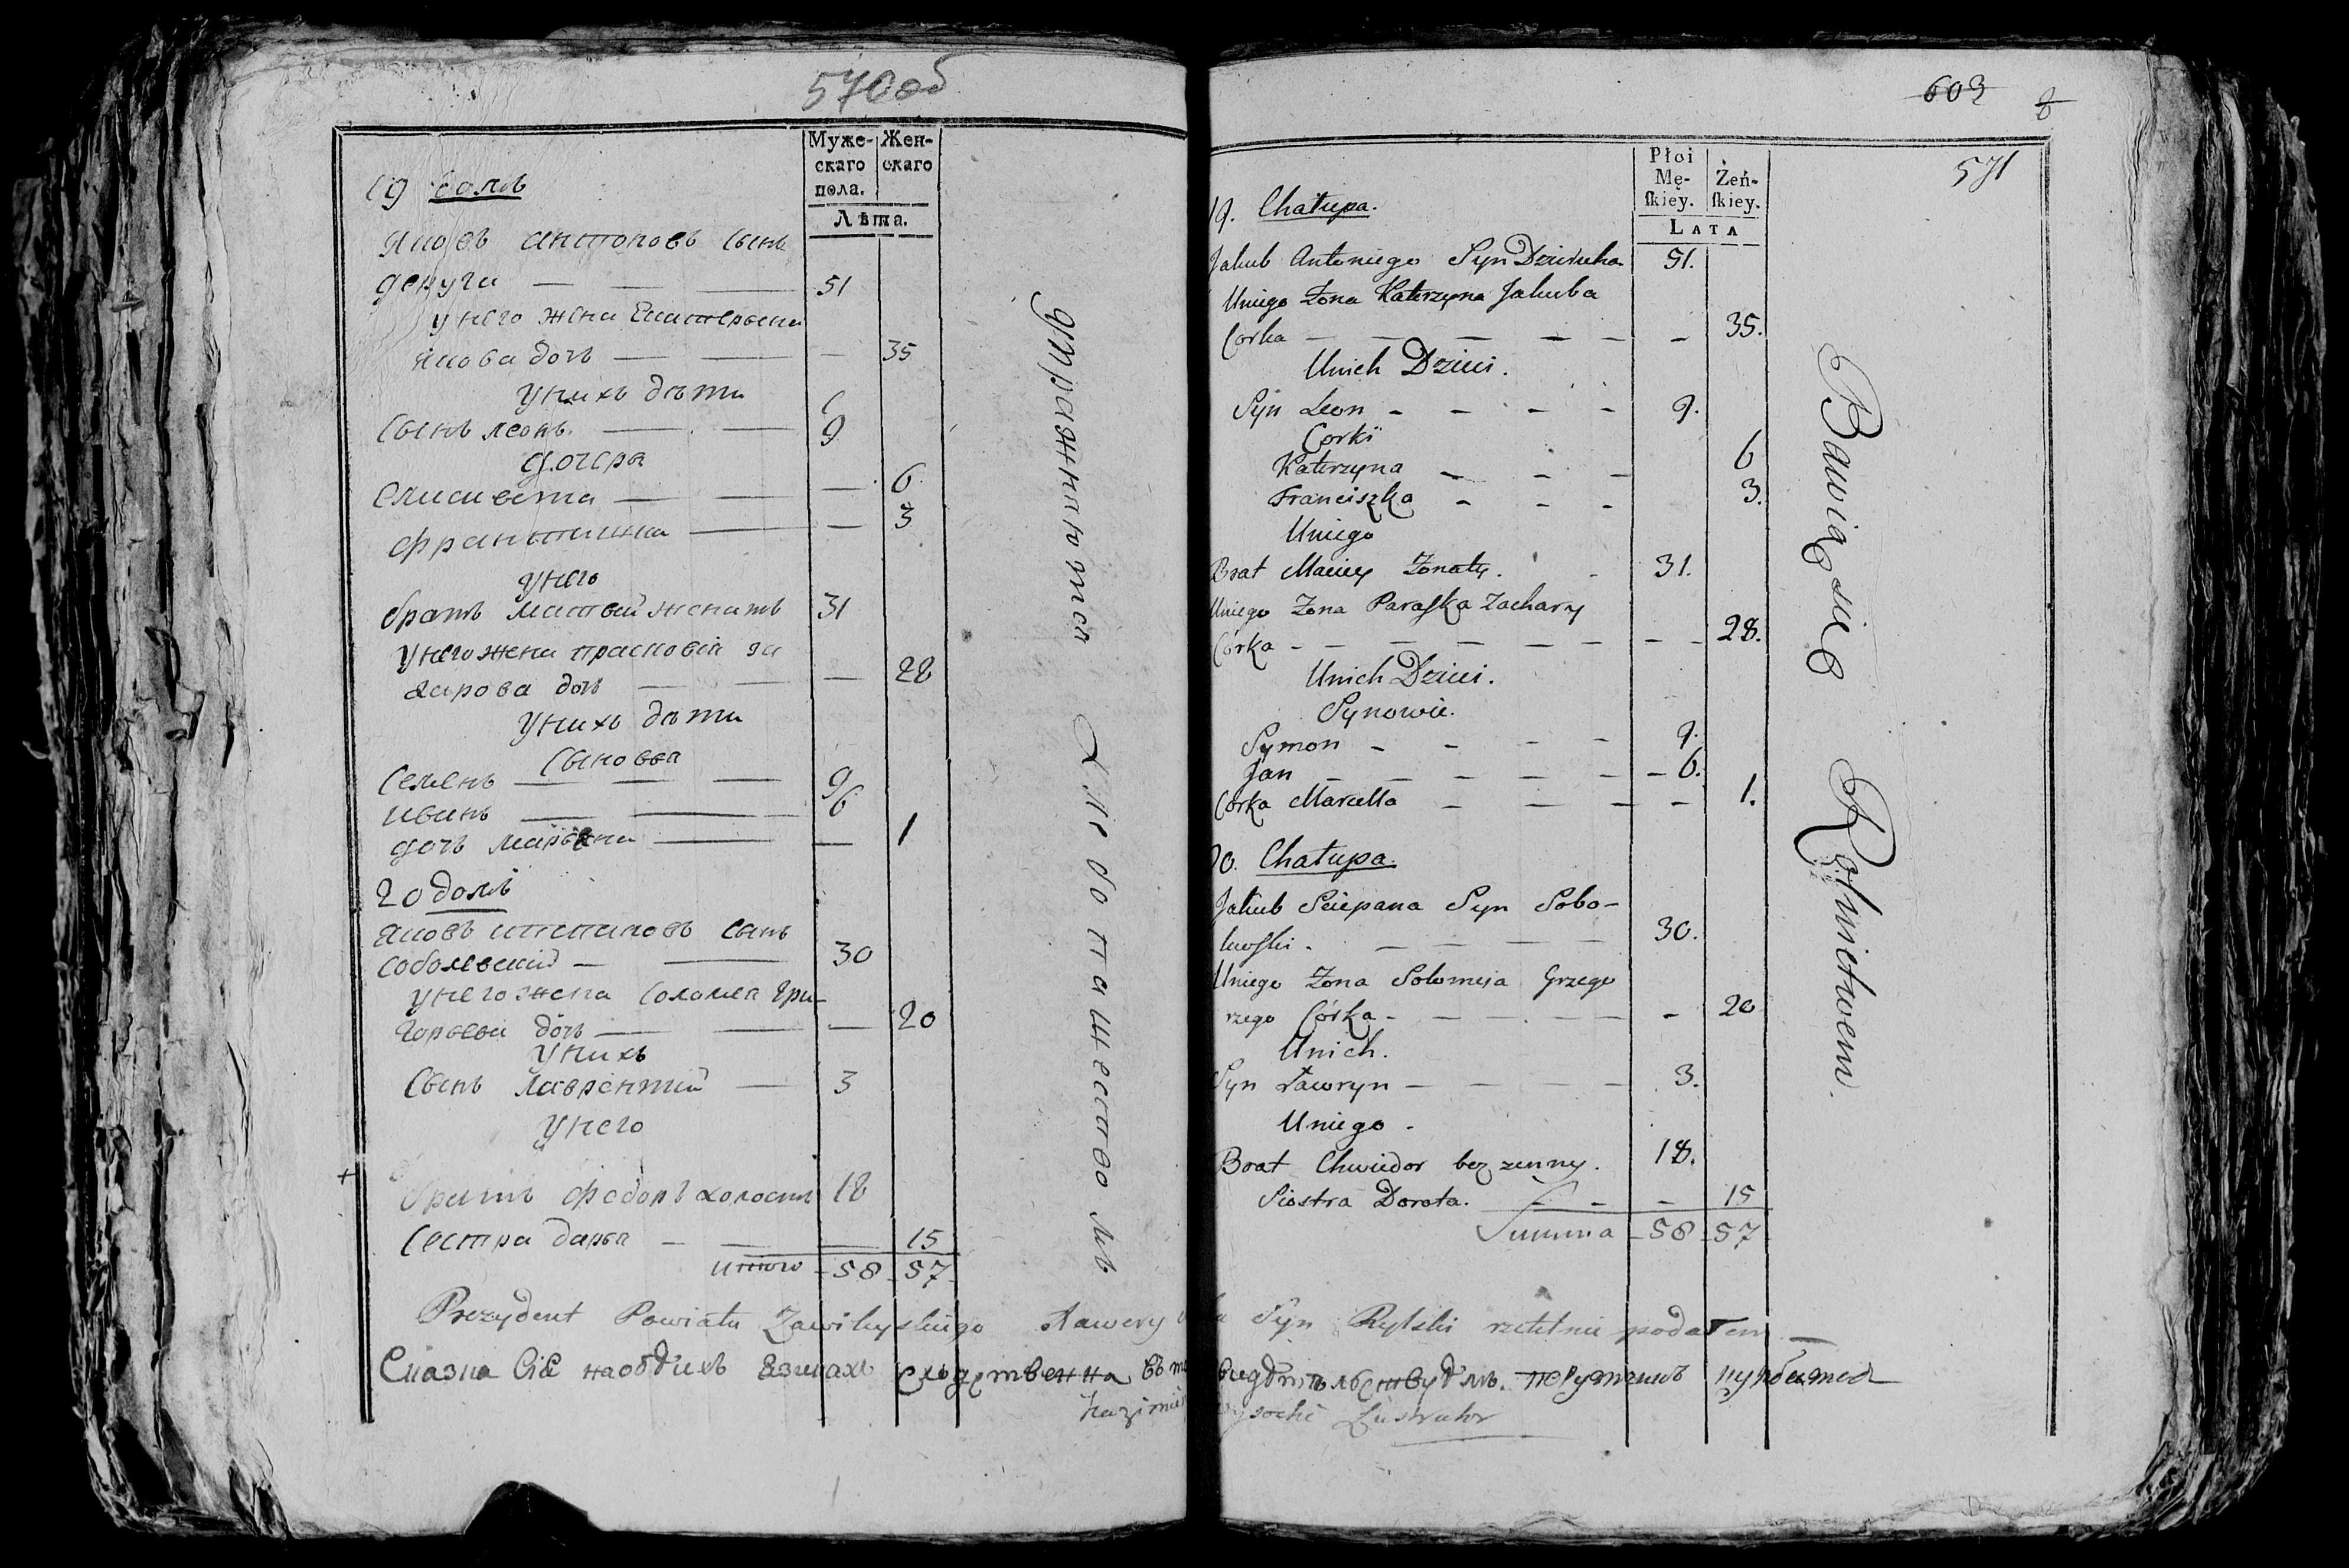 570 об
Муже-
скаго
пола.
Жен-
скаго
Лѣта.
19 домъ
Яковъ антоновъ сынъ
деруга — — — 51
у него жена Екатерына
якова дочь — — — 35
У нихъ дѣти
Сынъ леонъ. — — 9
дочера
Елисавета — — — 6
Францишка — — 3
у него
братъ матвѣй женатъ 31
У него жена прасковія за
харова дочь — — — 28
У нихъ дѣти
Сыновья
Семенъ — — — 9
иванъ — — — 6
дочь марьяна — — 1
20 домъ
яковъ степановъ сынъ
соболевский — — 30
у него жена соломея гри-
горьева дочь — — — 20
У нихъ
Сынъ лаврентий — 3
У него
+ братъ федоръ холостъ 18
Сестра дарья — — — 15
итого 58 57
упражняются хлебопашествомъ
603
8
571
Płci
Mę-
skiey.
Żeń-
skiey.
LATA
19. Chałupa.
Jakub Antoniego Syn Dziuruha 51.
Uniego Żona Katerzyna Jakuba
Corka — — — — — 35.
Unich Dzieci.
Syn Leon - - - - 9.
Corki
Katerzyna - - - 6
Franciszka - - - 3.
Uniego
Brat Maciey Żonaty. - 31.
Uniego Żona Paraska Zachary
Córka - — — — — — 28.
Unich Dzieci.
Synowie.
Symon - - - - 9.
Jan — — — — — 6.
Córka Marcella — — — — 1.
20. Chałupa.
Jakub Sciepana Syn Sobo-
lewski. — — — — 30.
Uniego Żona Solomeja Grzego
rzego Córka - — — — — - 20
Unich.
Syn Ławryn — — — — 3.
Uniego.
Brat Chwiedor bezzenny. 18.
Siostra Dorota. — — — 15
Summa 58 57
Bawią się Rolnictwem.
Prezydent Powiatu Zawileyskiego Xawery Syn Rylski rzetelnie podałem —
Сказка Сіе на обоихъ языкахъ
Lustrator